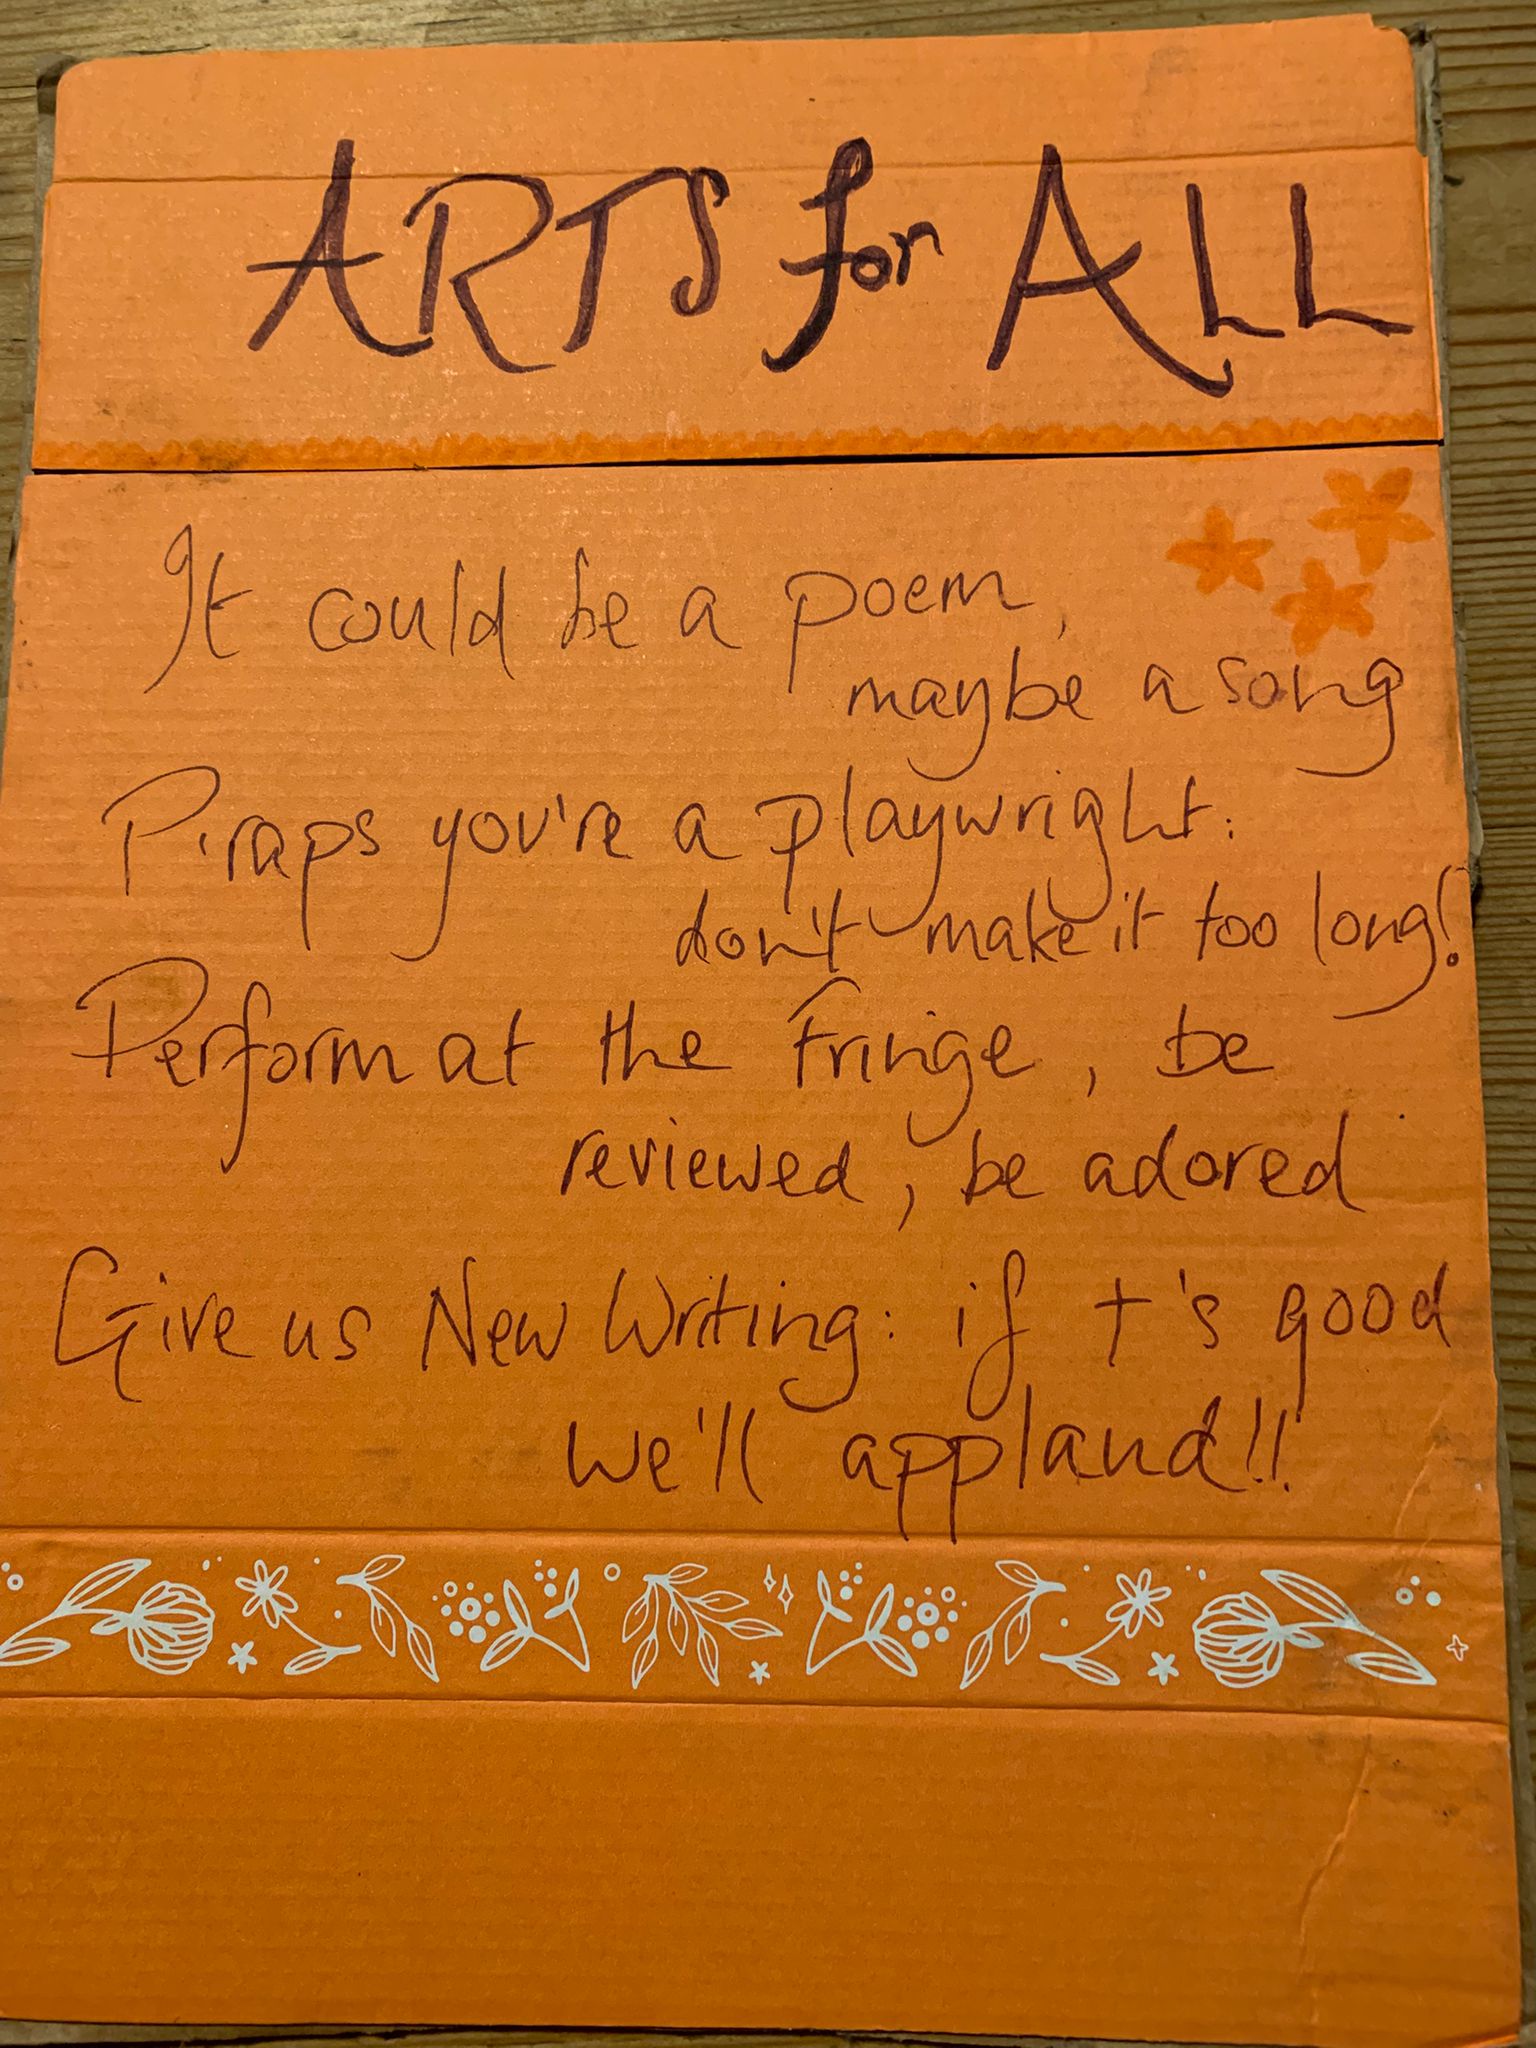 ARTS for ALL
It could be a poem,
maybe a song
P'raps you're a playwright:
don't make it too long!
Perform at the Fringe, be
reviewed, be adored
Give us New Writing: if t's good
we'll applaud!!